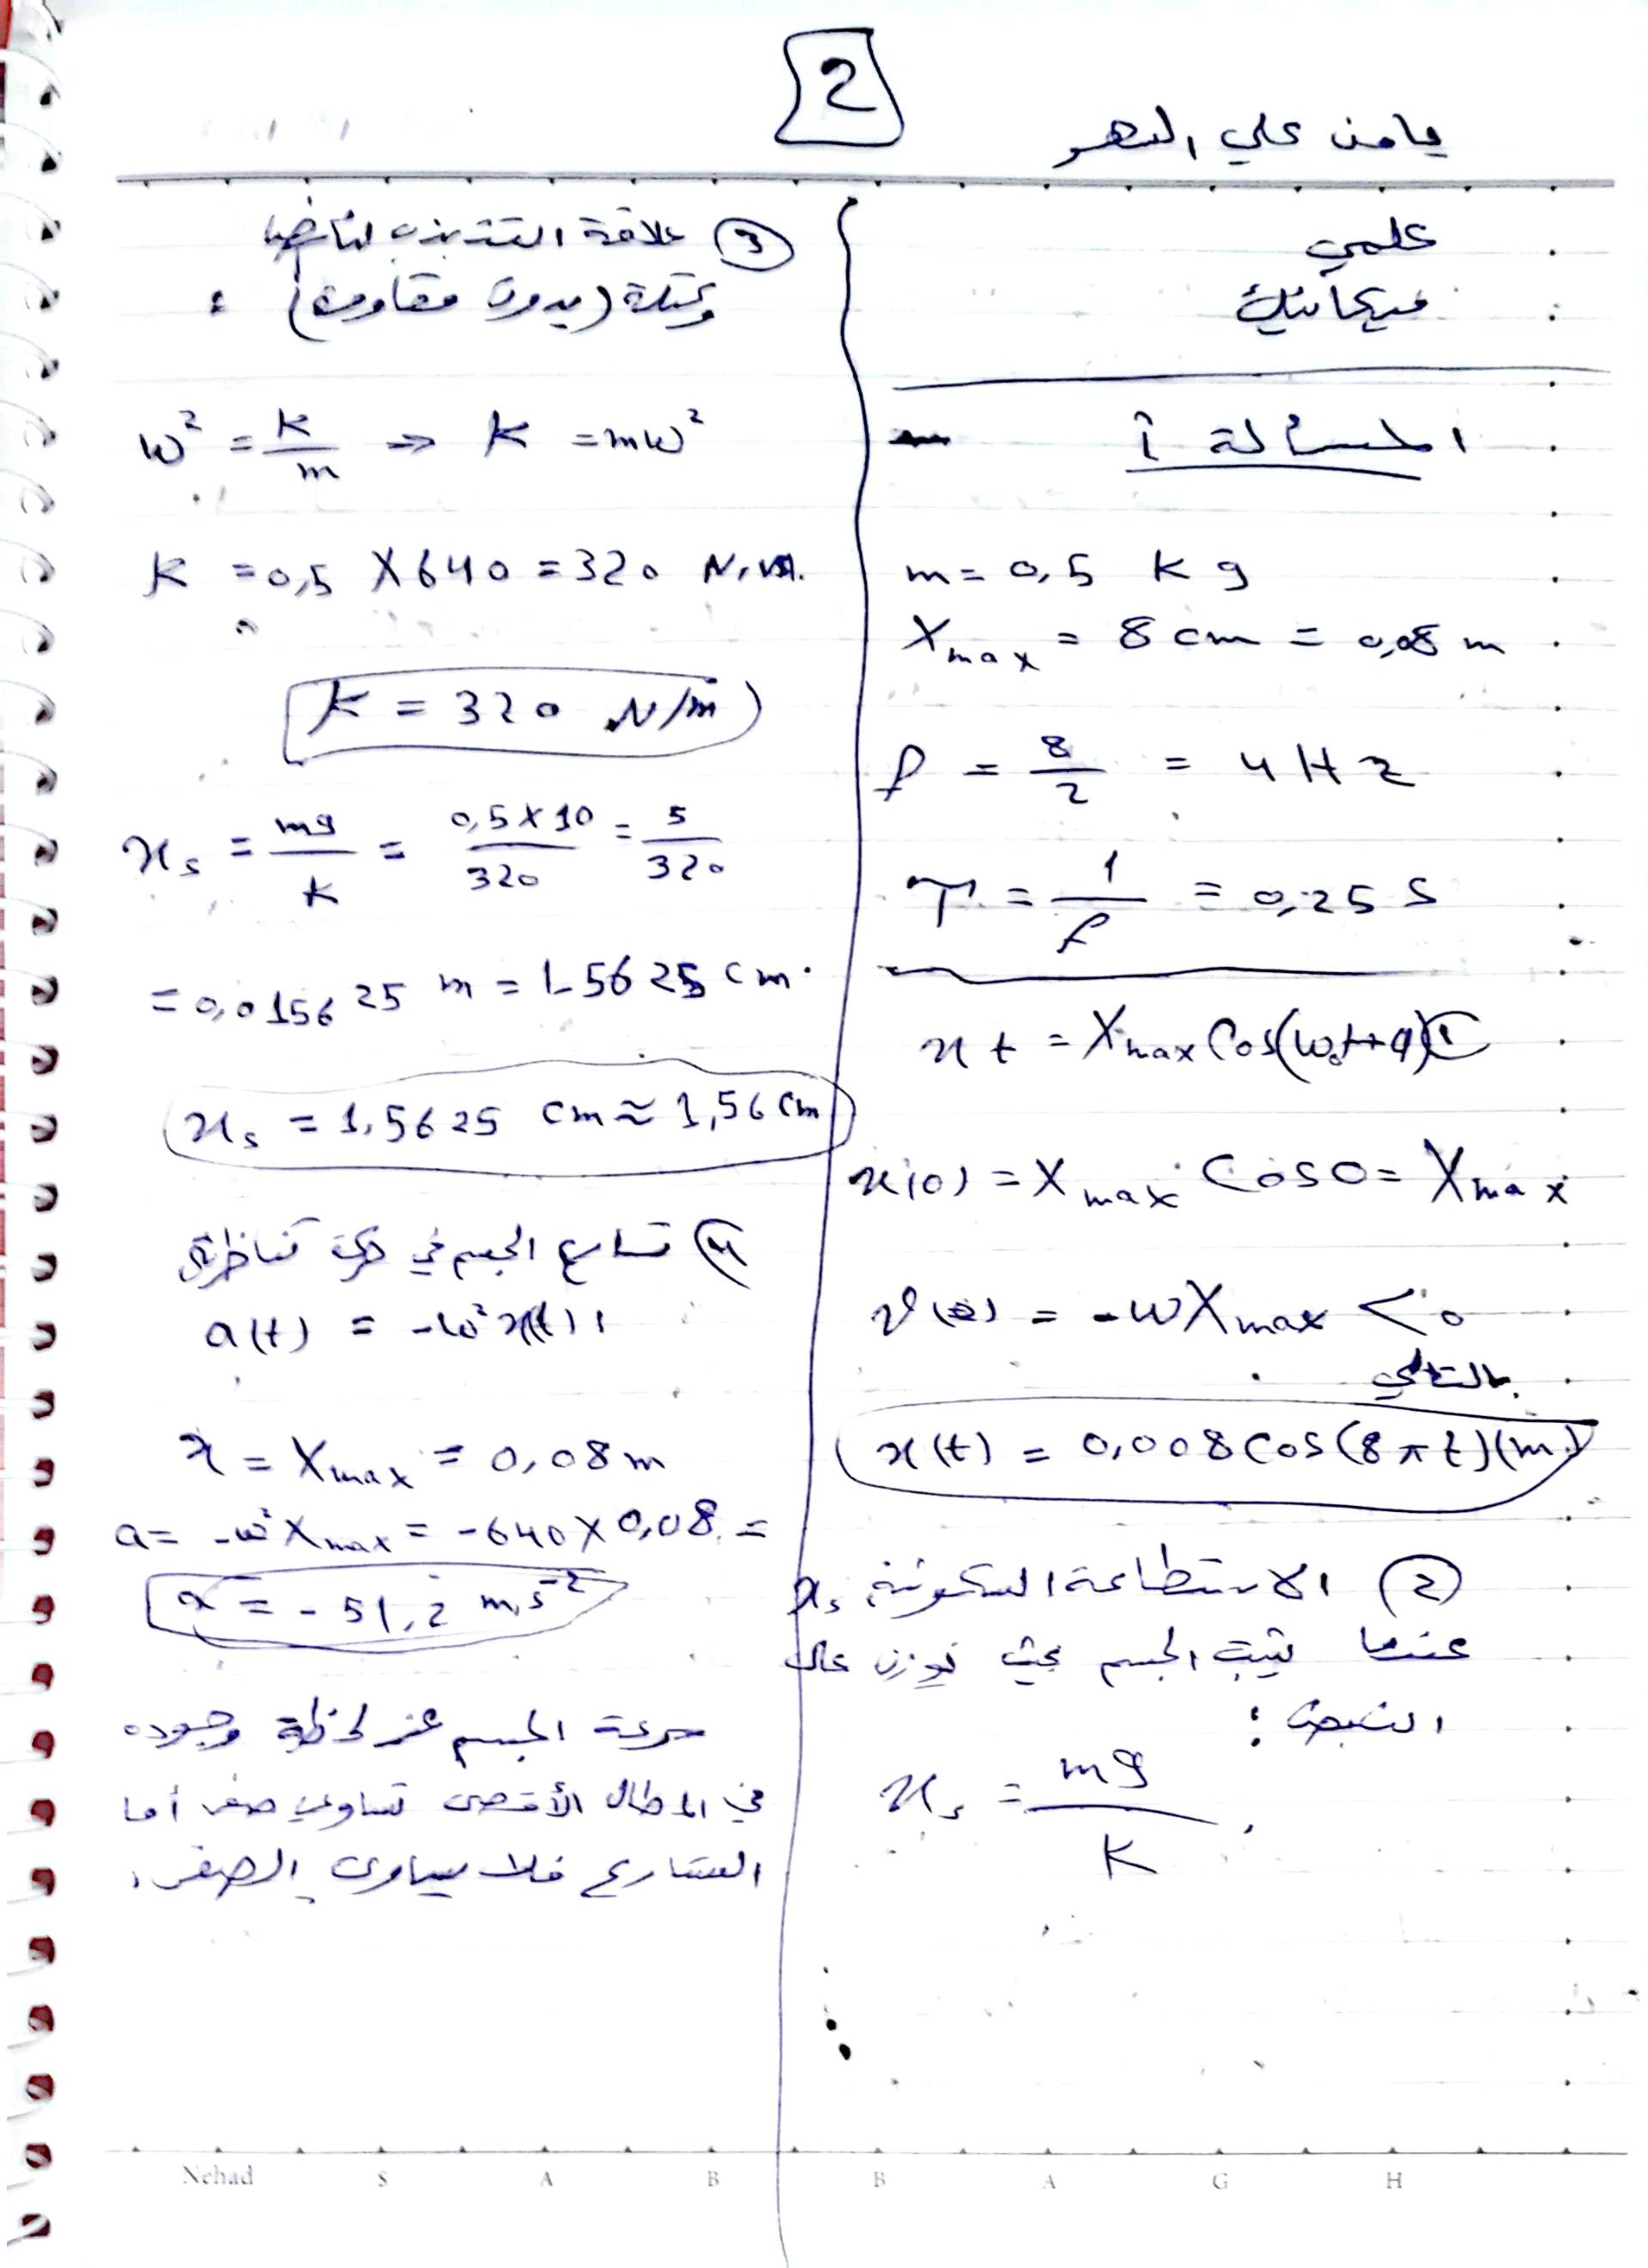 2
يامن علي السهو
علمي
ميكانيك
المسألة أ
m = 0,5 Kg
Xmax = 8 cm = 0,08 m
f = 8/2 = 4 Hz
T = 1/f = 0,25 s
x t = Xmax Cos(ω₀t+φ) ①
x(0) = Xmax Cos 0 = Xmax
v(0) = -ωXmax < 0
بالتالي
x(t) = 0,008 Cos(8πt)(m)
② الاستطاعة السكونية xs
عندما يثبت الجسم بحيث توازن على
النابض :
xs = mg/K
③ علاقة التذبذب لنابض
وكتلة (بدون مقاومة) :
ω² = K/m ⇒ K = mω²
K = 0,5 X 640 = 320 N.m.
K = 320 N/m
xs = mg/K = 0,5 X 10/320 = 5/320
= 0,015625 m = 1.5625 cm.
xs = 1,5625 cm ≈ 1,56 cm
④ تسارع الجسم في حركة تناظرية
a(t) = -ω²x(t)
x = Xmax = 0,08 m
a = -ω²Xmax = -640 X 0,08 =
a = -51,2 m.s⁻²
سرعة الجسم عند لحظة وجوده
في المطال الأقصى تساوي صفر أما
التسارع فلا يساوي الصفر.
Nehad S A B B A G H